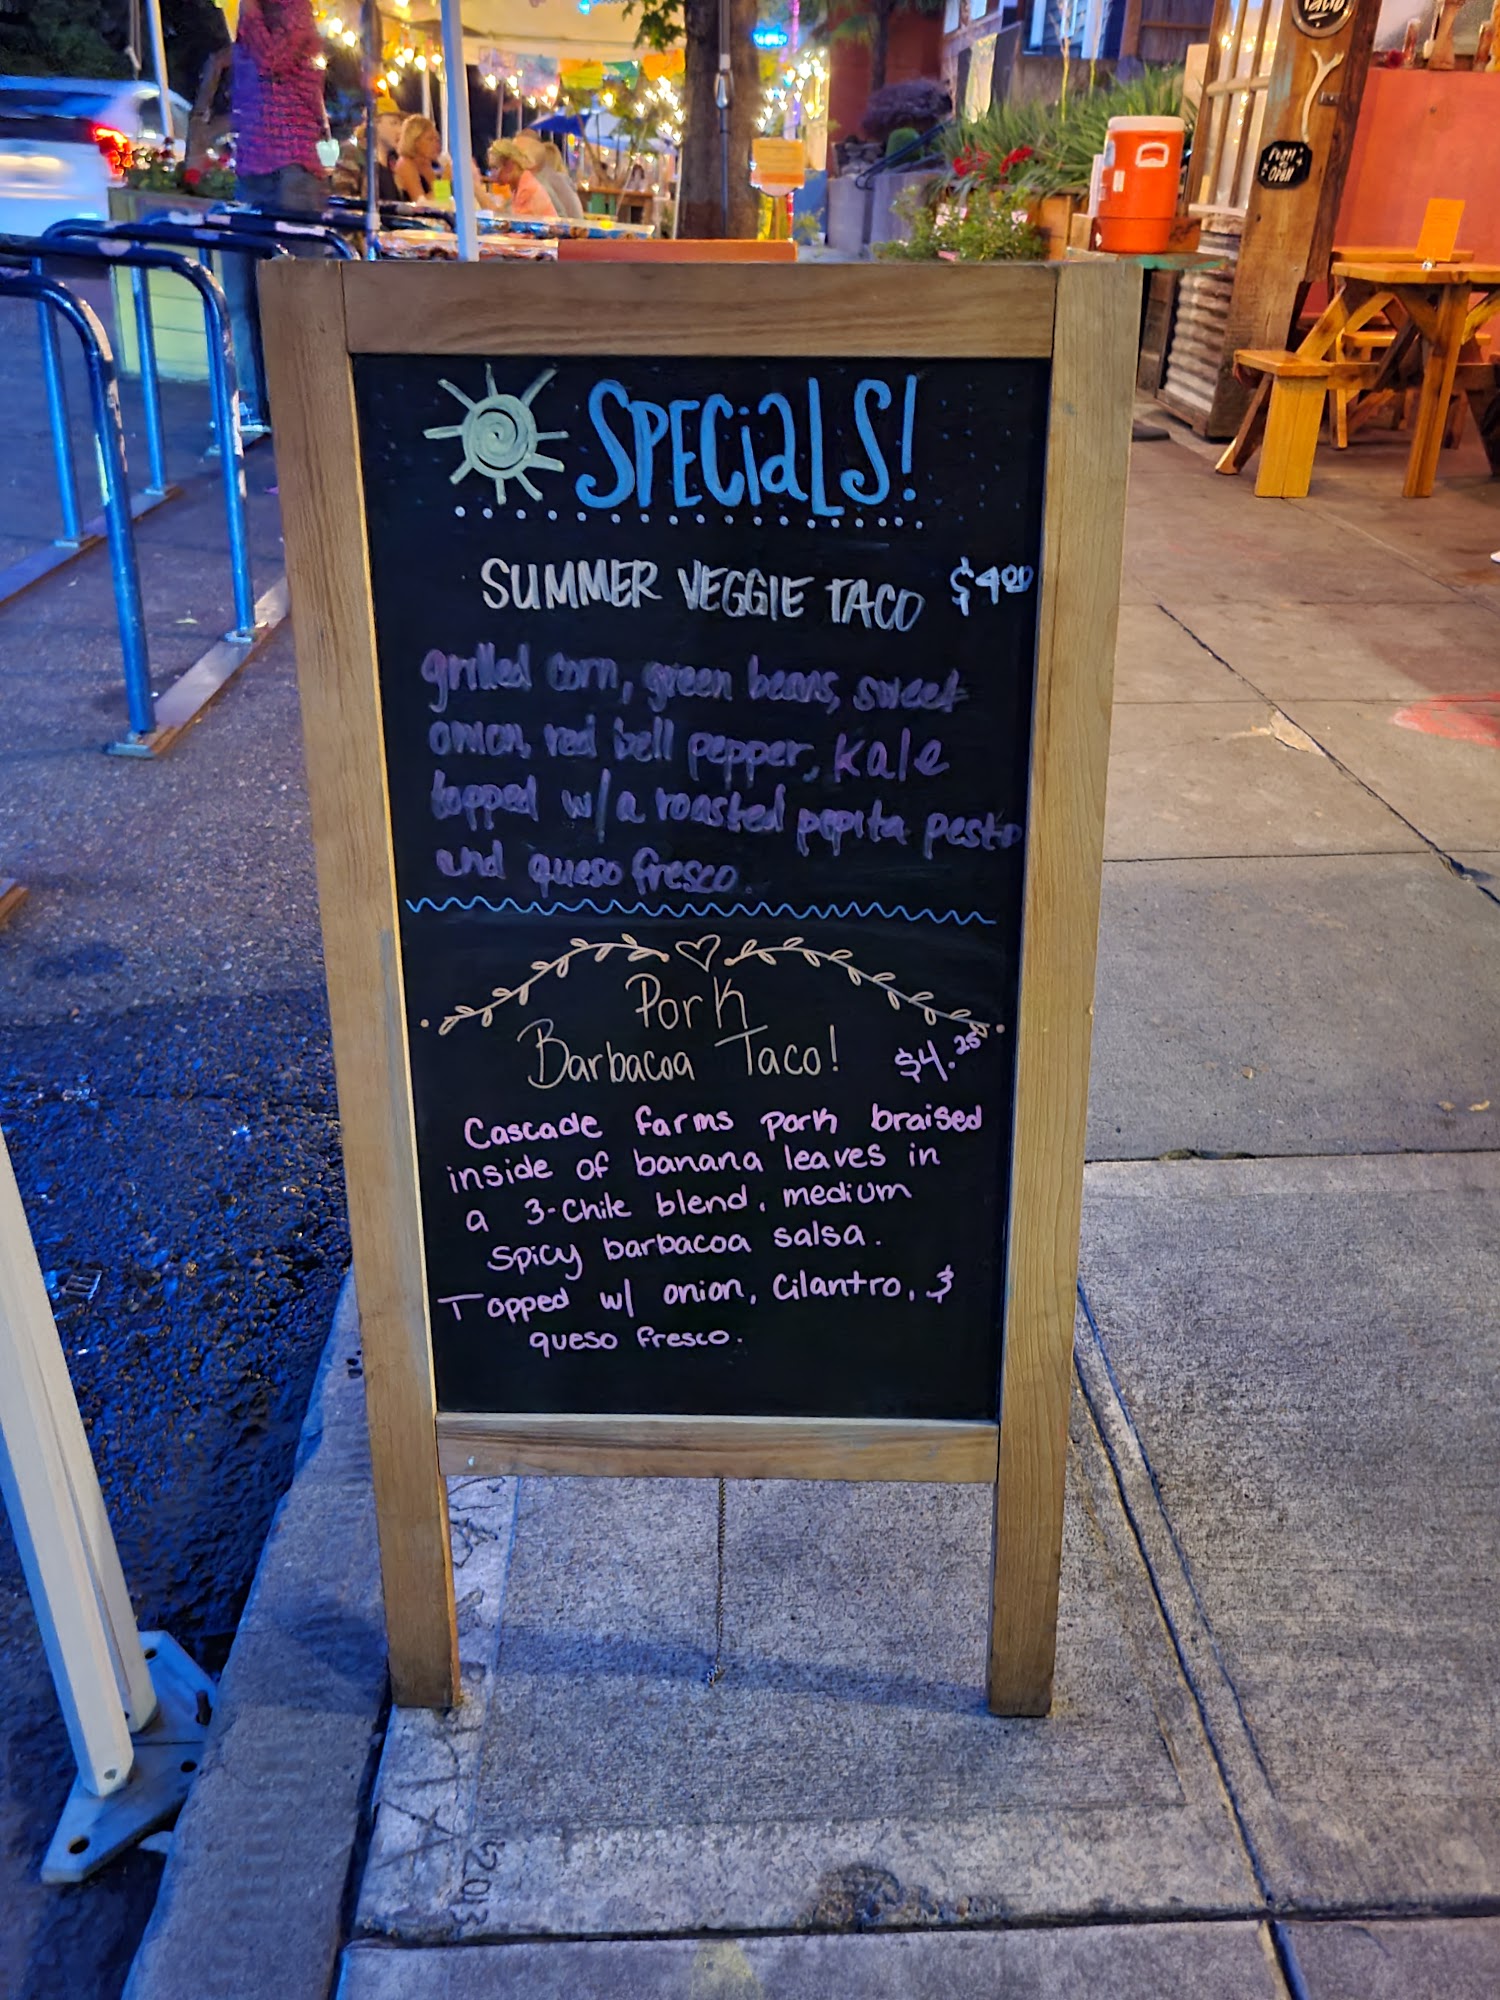 Taco
SPECiaLS!
SUMMER VEGGIE TACO $4.00
grilled corn, green beans, sweet
onion, red bell pepper, kale
topped w/a roasted pepita pesto
and queso fresco.
Pork
Barbacoa Taco! $4.25
Cascade farms pork braised
inside of banana leaves in
a 3-Chile blend, medium
spicy barbacoa salsa.
Topped w/ onion, Cilantro, &
queso fresco.
2013